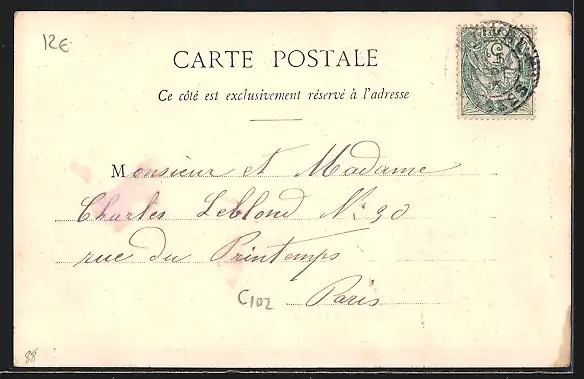 12€
CARTE POSTALE
Ce côté est exclusivement réservé à l'adresse
Monsieur et Madame
Charles Leblond Nº 30
rue du Printemps
C102
Paris
88